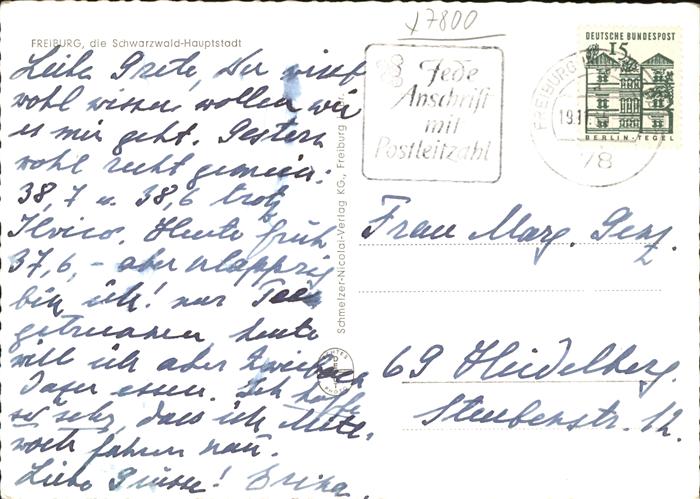 +7800
FREIBURG, die Schwarzwald-Hauptstadt
Liebe Grete, Du wirst
wohl wissen wollen wie
es mir geht. Gestern
wohl recht gemein:
38,7 u. 38,6 trotz
Ilvico. Heute früh
37,6, – aber klapprig
bin ich! nur Tee
getrunken, heute
will ich aber Zwieback
essen. Ich hoffe
so sehr, dass ich
noch fahren kann.
Liebe Grüsse! Erika.
Schmelzer-Nicolai-Verlag KG., Freiburg
Jede
Anschrift
mit
Postleitzahl
FREIBURG
19.11.
78
DEUTSCHE BUNDESPOST
15
BERLIN-TEGEL
Frau Marg. Genz
69 Heidelberg.
Steubenstr. 12.